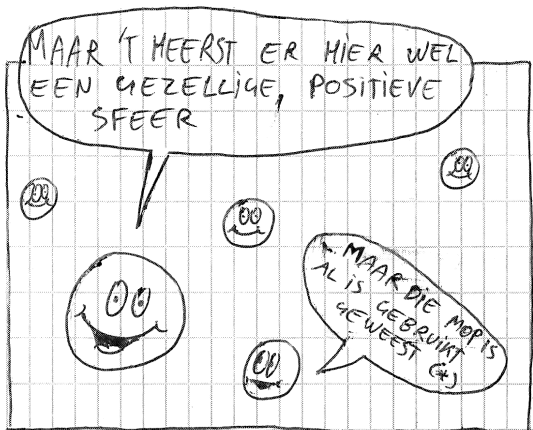 MAAR 'T HEERST ER HIER WEL
EEN GEZELLIGE, POSITIEVE
SFEER
MAAR DIE MOP IS
AL IS GEBRUIKT
GEWEEST (*)